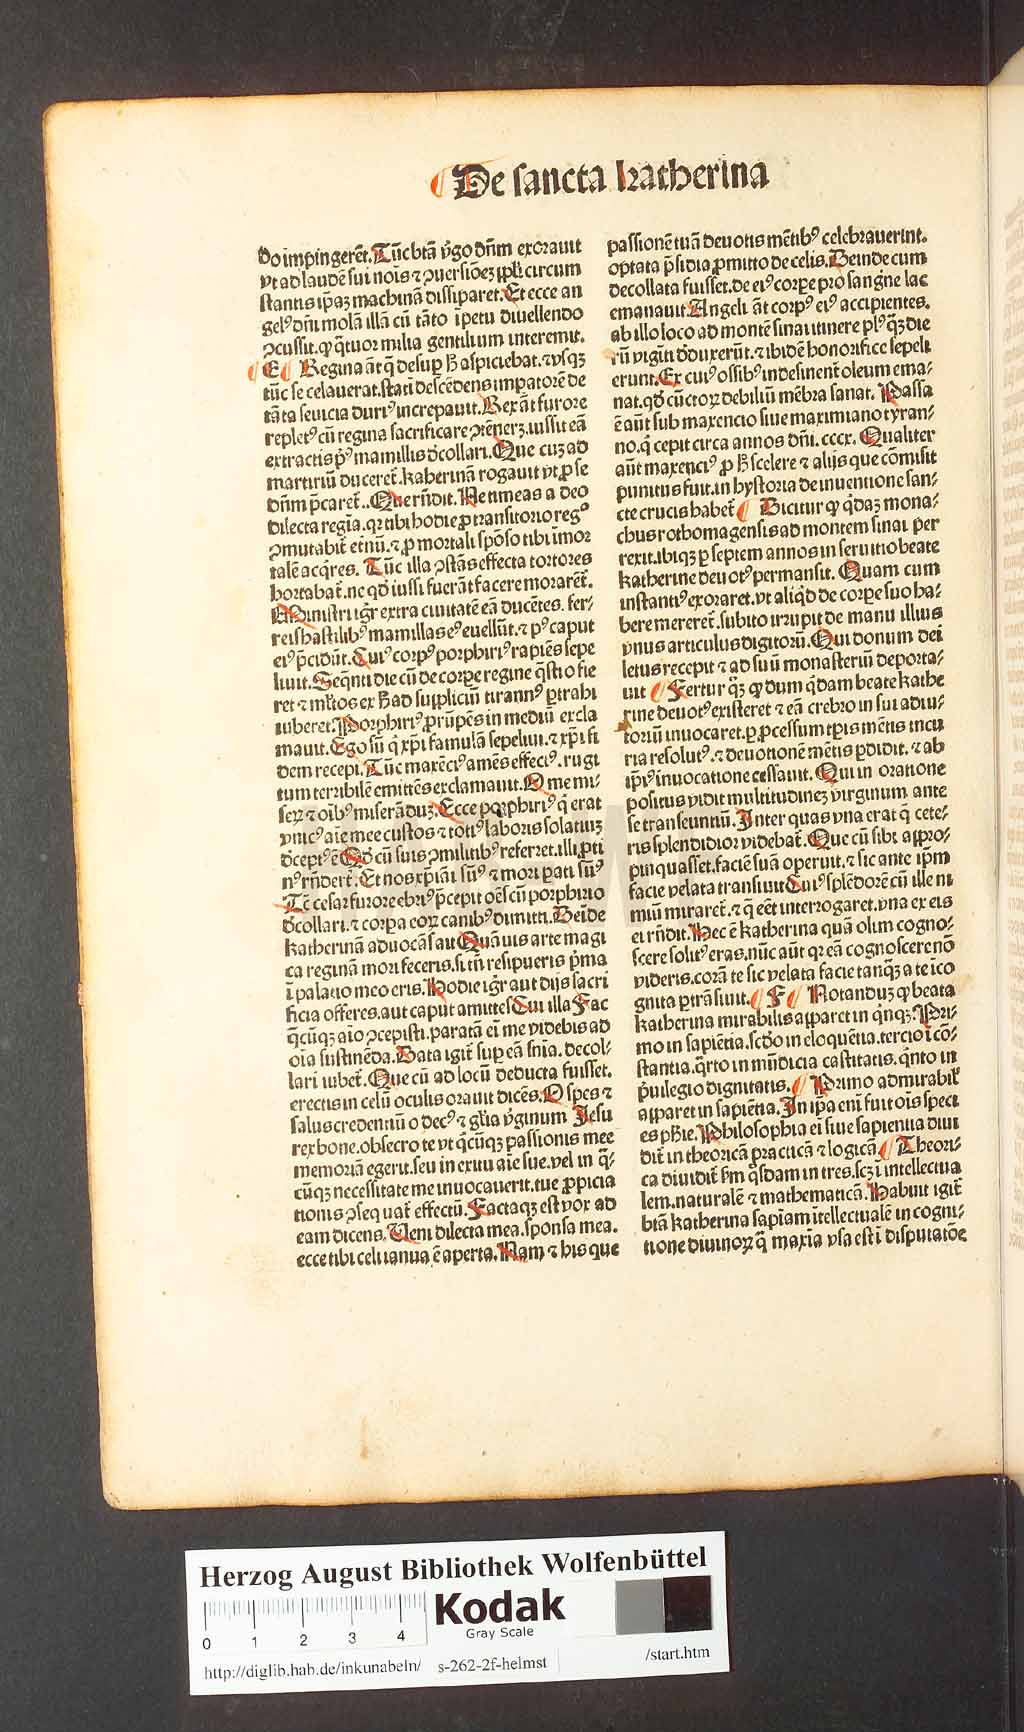 De sancta katherina
do impingerēt. Tūc btā v̓go dn̄m exorauit
vt ad laudē sui nois̄ ⁊ ꝯuersiōeꝫ ppl̓i circum
stantis ip̄aꝫ machinā dissiparet. Et ecce an
gelꝰ dn̄i molā illā cū tāto īpetu diuellendo
ꝯcussit. ꝙ q̄tuor milia gentilium interemit.
E Regina āt q̄ desup̱ h̄ aspiciebat. ⁊ vsqꝫ
tūc se celauerat. stati descēdens impatorē de
tāta seuicia duriꝰ increpauit. Rex āt furore
repletꝰ cū regina sacrificare ꝯtēneret. iussit eā
extractis pꝰ mamillis d̓collari. Que cuꝫ ad
martiriū duceret. katherinā rogauit vt ꝓ se
dn̄m p̄caret̄. Que rn̄dit. Ne timeas a deo
dilecta regīa. qꝛ tibi hodie ꝓ transitorio regꝰ
ꝯmutabit̄ etnū. ⁊ ꝓ mortali spōso tibi īmor
talē acq̄res. Tūc illa ꝯstās effecta tortores
hortabat̄. ne qd̓ iussi fuerāt facere morarēt̄.
Ministri igr̄ extra ciuitatē eā ducētes. fer⸗
reis hastilibꝰ mamillas eꝰ euellūt. ⁊ pꝰ caput
eiꝰ p̄cidūt. Cuiꝰ corpꝰ porphiriꝰ rapiēs sepe
liuit. Seqn̄ti die cū de corpe regine q̄stio fie
ret ⁊ ml̓tos ex h̄ ad supliciū tirannꝰ ptrahi
iuberet. Porphiriꝰ ꝓrūpēs in mediū excla
mauit. Ego sū q̄ xp̄i famulā sepeliui. ⁊ xp̄i fi
dem recepi. Tūc maxēciꝰ amēs effectꝰ. rugi
tum terribilē emittēs exclamauit. O me mi⸗
seꝝ ⁊ oīb̓ꝰ miserāduꝫ. Ecce porphiriꝰ q̄ erat
vnicꝰ aīe mee custos ⁊ totiꝰ laboris solatiuꝫ
d̓ceptꝰ ē Qd̓ cū suis ꝯmilitibꝰ referret. illi ꝓti
nꝰ rn̄dert̄. Et nos xp̄iāi sūꝰ ⁊ mori pati sūꝰ
Tē cesar furore ebriꝰ p̄cepit oēs cū porphirio
d̓collari. ⁊ corpa eoꝝ canibꝰ dimitti. Dēide
katherinā aduocās ait Quāuis arte magi
ca reginā mori feceris. si tn̄ resipueris p̄ma
ī palatio meo eris. Hodie igr̄ aut dijs sacri
ficia offeres. aut caput amittes Cui illa Fac
q̄cūqꝫ aīo ꝯcepisti. paratā ei me videbis ad
oīa sustinēda. Data igit̄ sup eā snīa. decol⸗
lari iubet̄. Que cū ad locū deducta fuisset.
erectis in celū oculis orauit dicēs. O spes ⁊
salus credentiū o decꝰ ⁊ gl̓ia v̓ginum Jesu
rex bone. obsecro te vt q̄cūqꝫ passionis mee
memoriā egerit. seu in exitu aīe sue. vel in q̄⸗
cūqꝫ necessitate me inuocauerit. tue ꝓpicia
tionis ꝯsequat̄ effectū. Factaqꝫ est vox ad
eam dicens. Veni dilecta mea. sponsa mea.
ecce tibi celi ianua ē aperta. Nam ⁊ his que
passionē tuā deuotis mētibꝰ celebrauerint.
optata p̄sidia ꝓmitto de celis. Deinde cum
decollata fuisset. de eiꝰ corpe pro sangne lac
emanauit Angeli āt corpꝰ eiꝰ accipientes.
ab illo loco ad montē sinai itinere plꝰ q̄ꝫ die
rū viginti d̓duxerūt. ⁊ ibidē honorifice sepeli
erunt. Ex cuiꝰ ossibꝰ indesinent̄ oleum ema⸗
nat. qd̓ cūctoꝝ debiliū mēbra sanat. Passa
ē aūt sub maxencio siue maximiano tyran⸗
no. q̄ cepit circa annos dn̄i. cccx. Qualiter
aūt maxenciꝰ ꝓ h̄ scelere ⁊ alijs que cōmisit
punitus fuit. in hystoria de inuentione san⸗
cte crucis habet̄ Dicitur ꝙ q̄daꝫ mona⸗
chus rothomagensis ad montem sinai per
rexit. ibiqꝫ p septem annos in seruitio beate
katherine deuotꝰ permansit. Quam cum
instantiꝰ exoraret. vt aliq̄d de corpe suo ha⸗
bere mereret̄. subito irrupit de manu illius
vnus articulus digitorū. Qui donum dei
letus recepit ⁊ ad suū monasteriū deporta⸗
uit Fertur q̄ꝫ ꝙ dum q̄dam beate kathe
rine deuotꝰ existeret ⁊ eā crebro in sui adiu⸗
toriū inuocaret. p ꝓcessum tp̄is mētis incu
ria resolutꝰ. ⁊ deuotionē mētis pdidit. ⁊ ab
ip̄iꝰ inuocatione cessauit. Qui in oratione
positus vidit multitudineꝫ virginum ante
se transeuntiū. Inter quas vna erat q̄ cete⸗
ris splendidior videbat̄. Que cū sibi appro⸗
pinquasset. faciē suā operuit. ⁊ sic ante ip̄m
facie velata transiuit Cuiꝰ splēdorē cū ille ni
miū miraret̄. ⁊ q̄ eēt interrogaret. vna ex eis
ei rn̄dit. Hec ē katherina quā olim cogno⸗
scere solitꝰ eras. nūc aūt qꝛ eā cognoscere nō
videris. corā te sic velata facie tanq̄ꝫ a te īco
gnita ptrāsiuit. F Notanduꝫ ꝙ beata
katherina mirabilis apparet in q̄nqꝫ. Pri⸗
mo in sapiētia. scd̓o in eloquētia. tercio ī cō⸗
stantia. q̄rto in mūdicia castitatis. q̄nto in
p̓uilegio dignitatis. Primo admirabil̓
apparet in sapiētia. In ip̄a eni fuit ois̄ speci
es phīe. Philosophia ei siue sapientia diui
dit̄ in theoricā practicā ⁊ logicā Theori⸗
ca diuidit̄ ẜm q̄sdam in tres. scꝫ ī intellectua
lem. naturalē ⁊ mathematicā. Habuit igit̄
btā katherina sapīam ītellectualē in cogni⸗
tione diuinoꝝ q̄ maxīa vsa est ī disputatōe
Herzog August Bibliothek Wolfenbüttel
0 1 2 3 4
Kodak
Gray Scale
http://diglib.hab.de/inkunabeln/ s-262-2f-helmst /start.htm